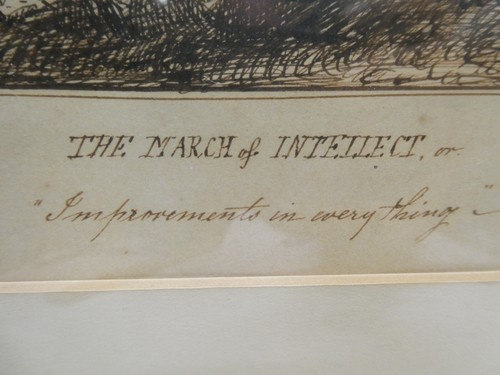 THE MARCH of INTELLECT, or
"Improvements in every thing"